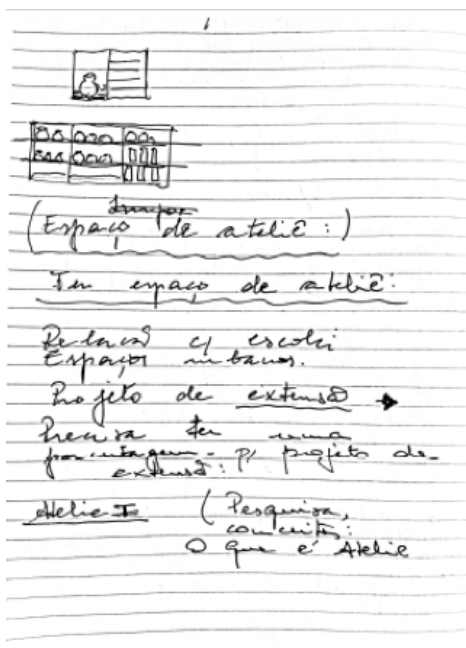 (Espaço de ateliê:)
Ter espaço de ateliê:
Relação c/ escola
Espaços urbanos.
Projeto de extensão →
Precisa ter uma
porcentagem - p/ projeto de-
extensão:
Atelie I (Pesquisa,
conceitos:
O que é Atelie